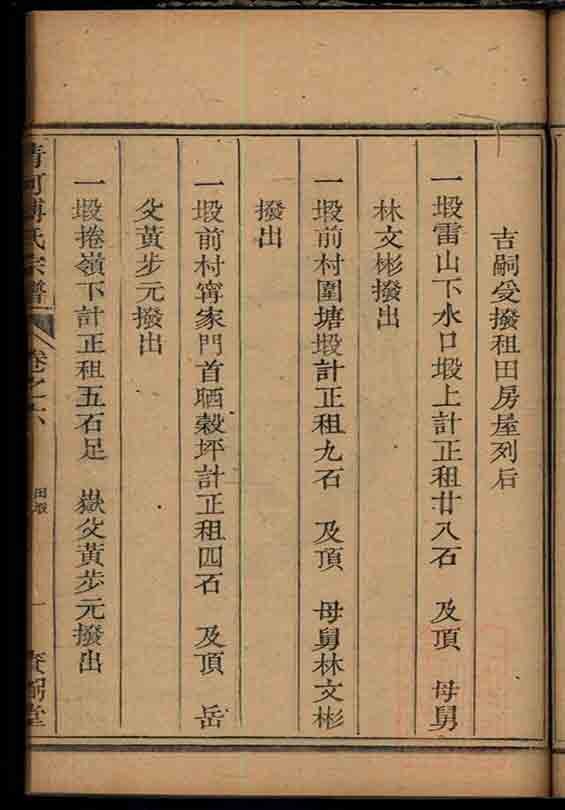 吉嗣受撥租田房屋列后
一塅雷山下水口塅上計正租廿八石 及頂 母舅
林文彬撥出
一塅前村圍塘塅計正租九石 及頂 母舅林文彬
撥出
一塅前村甯家門首晒穀坪計正租四石 及頂 岳
父黃步元撥出
一塅捲嶺下計正租五石足 嶽父黃步元撥出
清河傅氏宗譜 卷之六 田塅 一